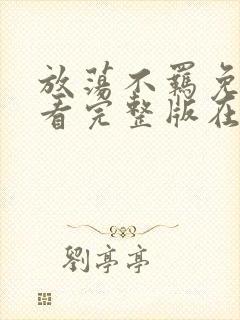 放蕩不羈免
看完整版在
劉亭亭